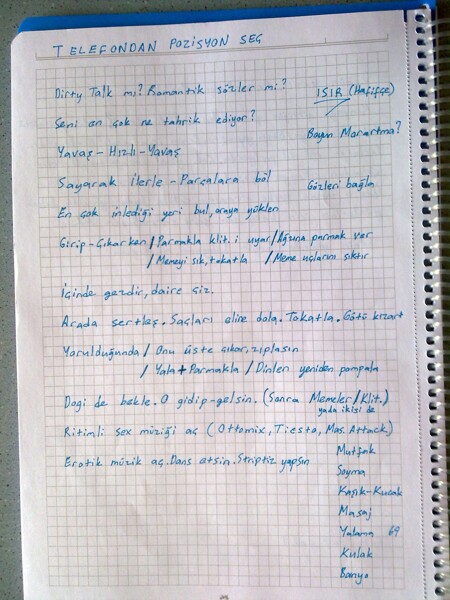 TELEFONDAN POZİSYON SEÇ
Dirty Talk mı? Romantik sözler mi?
ISIR (Hafifçe)
Seni en çok ne tahrik ediyor?
Boyun Morartma?
Yavaş - Hızlı - Yavaş
Sayarak ilerle - Parçalara böl
Gözleri bağla
En çok inlediği yeri bul, oraya yüklen
Girip-Çıkarken / Parmakla klit.i uyar / Ağzına parmak ver
/ Memeyi sık, tokatla / Meme uçlarını sıktır
İçinde gezdir, daire çiz.
Arada sertleş. Saçları eline dola. Tokatla. Götü kızart
Yorulduğunda / Onu üste çıkar, zıplasın
/ Yala + Parmakla / Dinlen yeniden pompala
Dogi de bekle. O gidip-gelsin. (Sonra Memeler / Klit.)
yada ikizi de
Ritimli sex müziği aç (Ottomix, Tiesto, Mas. Attack)
Erotik müzik aç. Dans etsin. Striptiz yapsın
Mutfak
Soyma
Kaşık-Kucak
Masaj
Yalama 69
Kulak
Banyo